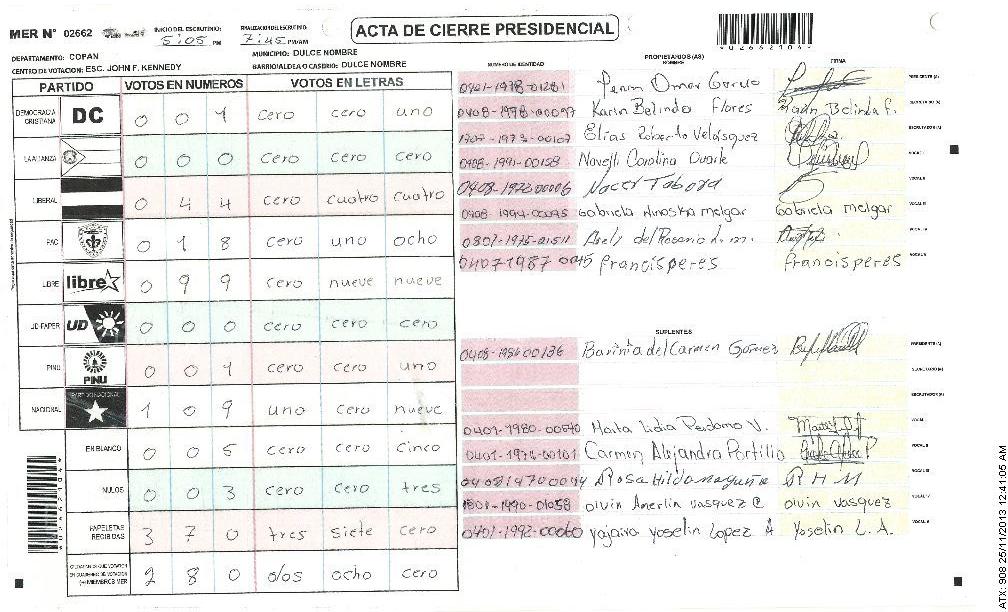 MER N° 02662
INICIO DEL ESCRUTINIO: 5:05 PM
FINALIZACION DEL ESCRUTINIO: 7:45 PM/AM
ACTA DE CIERRE PRESIDENCIAL
DEPARTAMENTO: COPAN
MUNICIPIO: DULCE NOMBRE
CENTRO DE VOTACION: ESC. JOHN F. KENNEDY
BARRIO/ALDEA O CASERIO: DULCE NOMBRE
PARTIDO VOTOS EN NUMEROS VOTOS EN LETRAS
DEMOCRACIA CRISTIANA DC 0 0 1 cero cero uno
LA ALIANZA 0 0 0 cero cero cero
LIBERAL 0 4 4 cero cuatro cuatro
PAC 0 1 8 cero uno ocho
LIBRE libre 0 9 9 cero nueve nueve
UD-FAPER UD 0 0 0 cero cero cero
PINU PINU 0 0 1 cero cero uno
NACIONAL PARTIDO NACIONAL 1 0 9 uno cero nueve
EN BLANCO 0 0 5 cero cero cinco
NULOS 0 0 3 cero cero tres
PAPELETAS RECIBIDAS 3 7 0 tres siete cero
CIUDADANOS QUE VOTARON EN CUADERNO DE VOTACION (+) MIEMBROS MER 2 8 0 dos ocho cero
NUMERO DE IDENTIDAD PROPIETARIOS (AS) NOMBRE FIRMA
0401-1978-01281 Omar PRESIDENTE (A)
0408-1978-00097 Karin Belinda Flores Karin Belinda F. SECRETARIO (A)
Elias Roberto Velásquez ESCRUTADOR (A)
0408-1991-00158 Carolina Duarte VOCAL I
0408-1972-00006 Tabora VOCAL II
0408-1994-00095 Gabriela melgar Gabriela melgar VOCAL III
del Rosario L. m. VOCAL IV
0407-1987 0045 francisperes francisperes VOCAL V
SUPLENTES
del Carmen Gómez PRESIDENTE (A)
SECRETARIO (A)
ESCRUTADOR (A)
0401-1980-00540 Marta Lidia Perdomo V. VOCAL I
Carmen Alejandra Portillo VOCAL II
Rosa Hilda R H M VOCAL III
1990-01058 olvin Amerlin vasquez olvin vasquez VOCAL IV
0401-1992-00060 yajaira yoselin Lopez A yoselin L. A. VOCAL V
ATX: 908 25/11/2013 12:41:05 AM